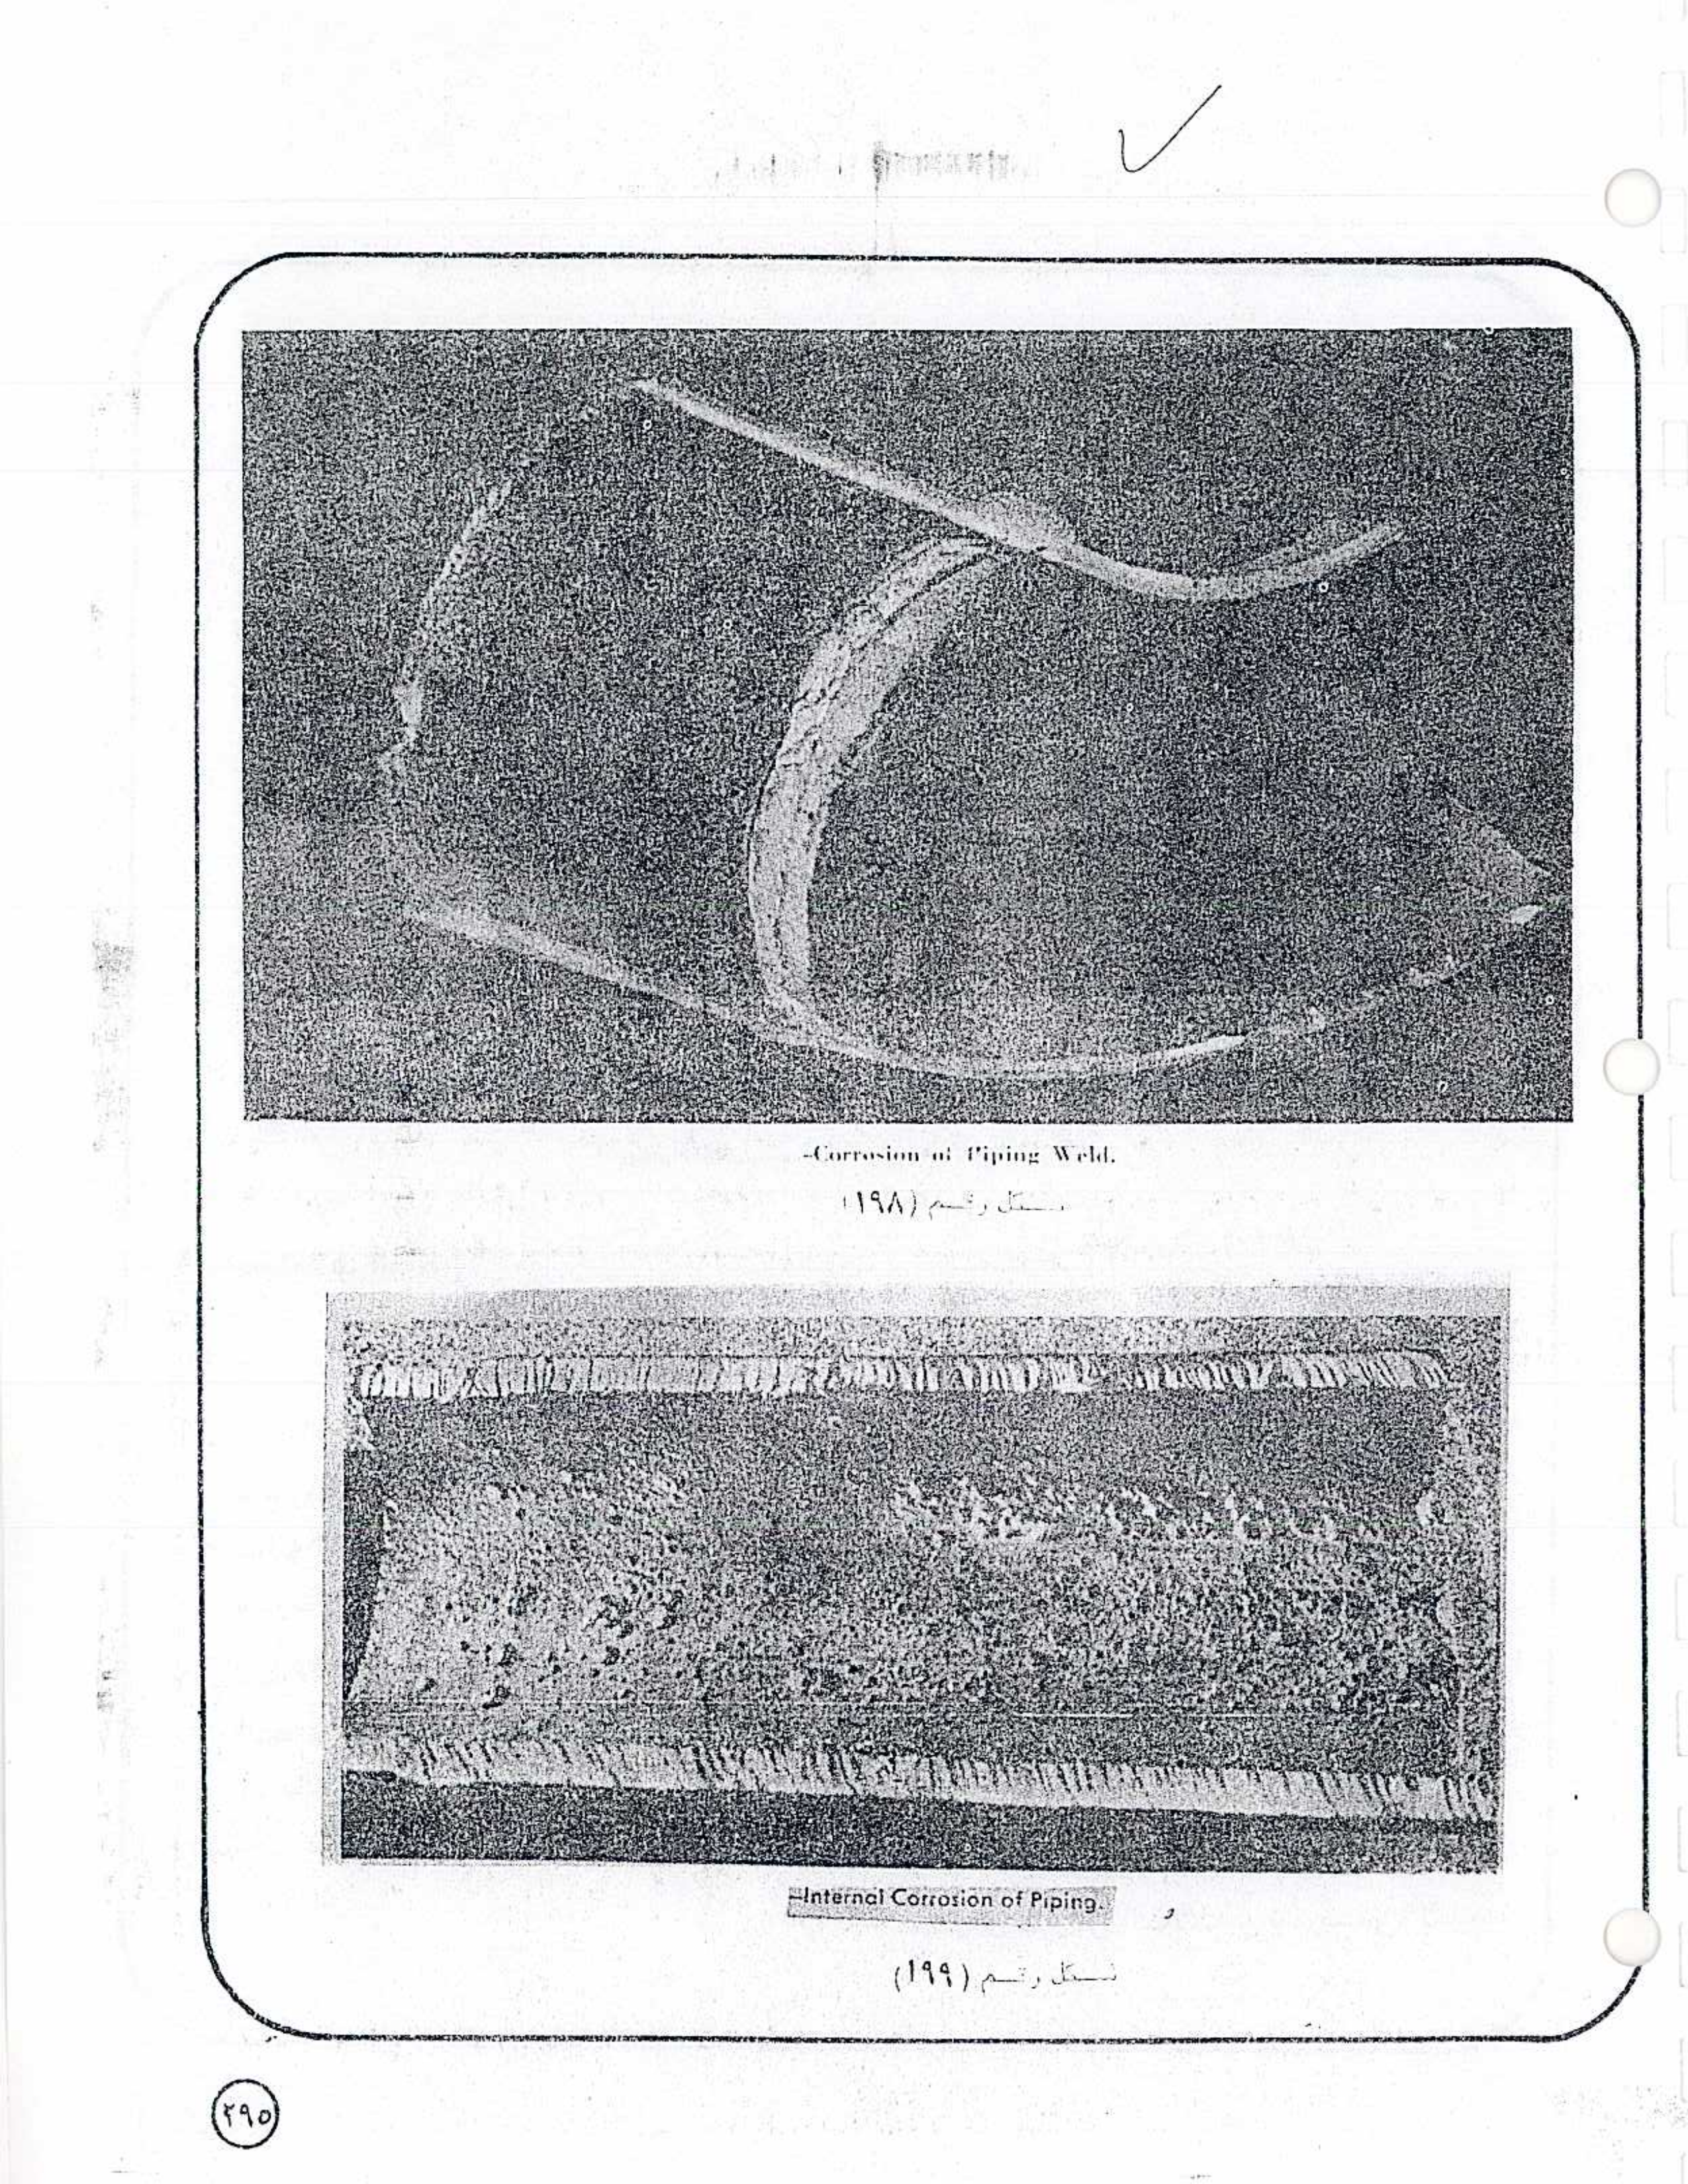 -Corrosion of Piping Weld.
شكل رقم (١٩٨)
-Internal Corrosion of Piping.
شكل رقم (١٩٩)
٢٩٥